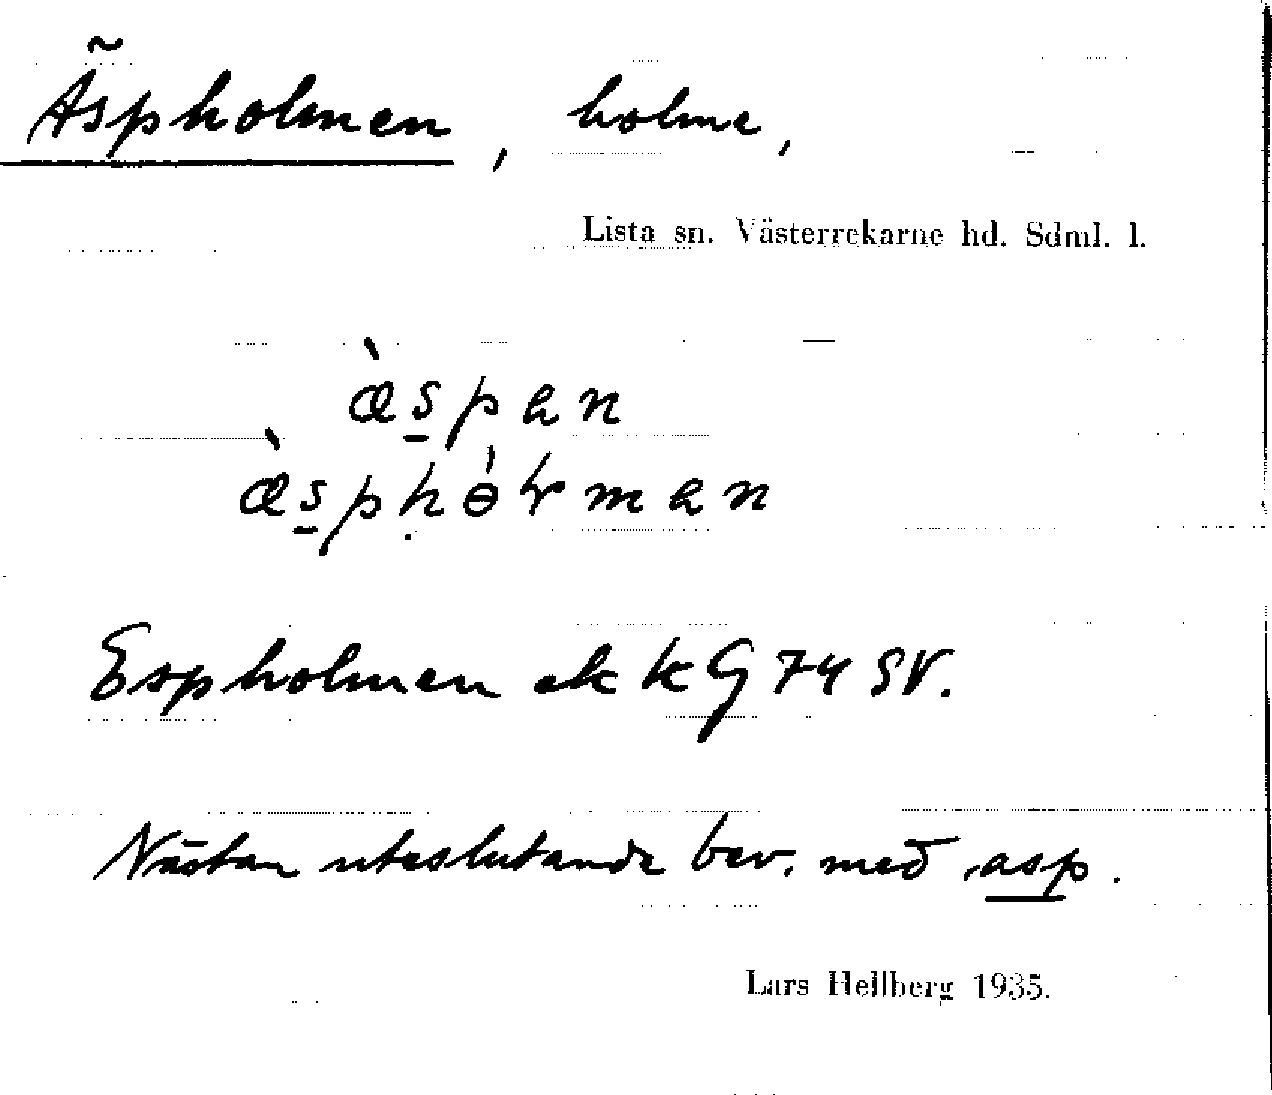 Äspholmen, holme,
Lista sn. Västerrekarne hd. Sdml. l.
æ̀span
æ̀spḥɵ́ɫman
Espholmen ek kG 74 SV.
Nästan uteslutande bev. med asp.
Lars Hellberg 1935.